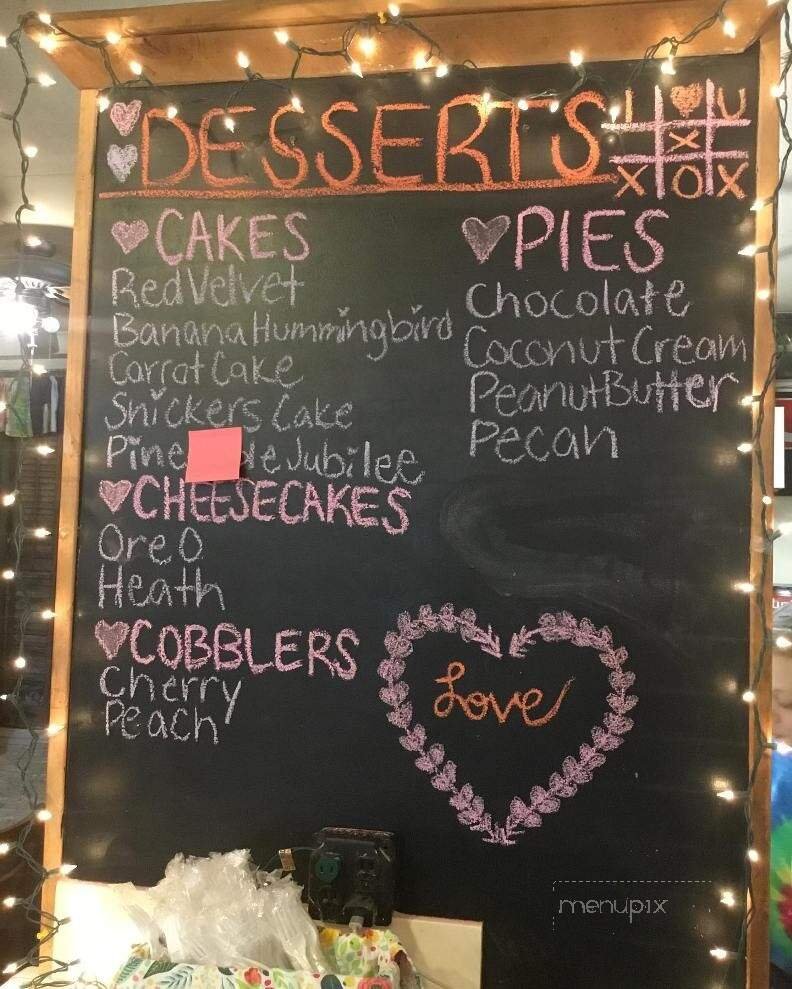 DESSERTS
I ♥ U
X
X O X
CAKES
Red Velvet
Banana Hummingbird
Carrot Cake
Snickers Cake
Jubilee
CHEESECAKES
Oreo
Heath
COBBLERS
Cherry
Peach
PIES
Chocolate
Coconut Cream
Peanut Butter
Pecan
Love
menupix